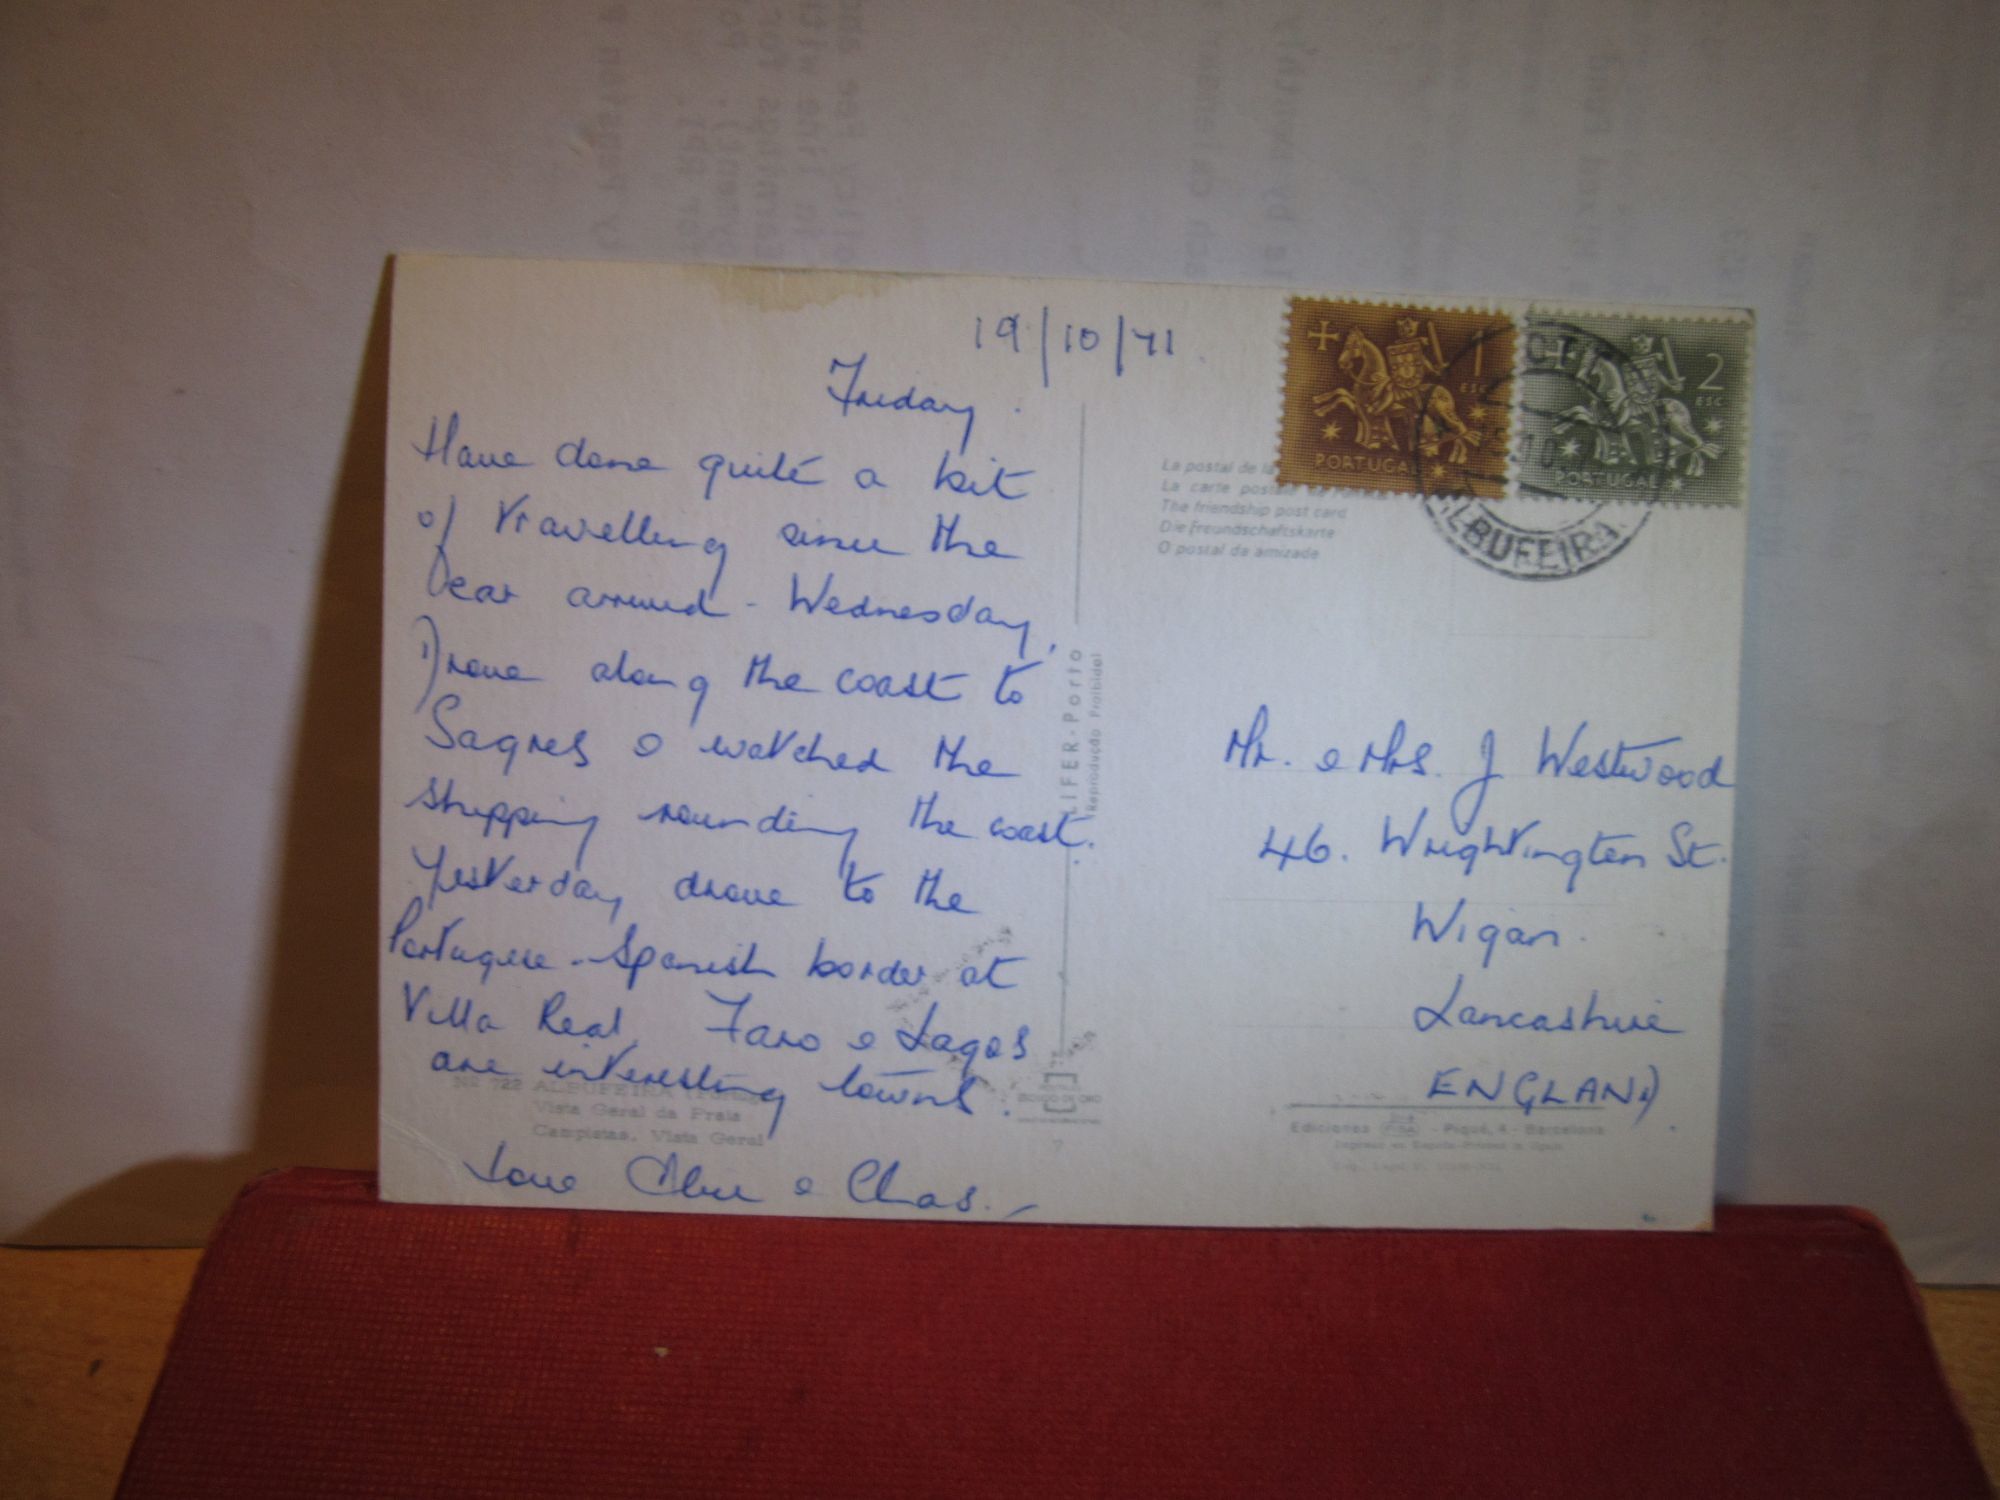 19/10/71.
Friday.
Have done quite a bit
of travelling since the
car arrived - Wednesday,
Drove along the coast to
Sagres & watched the
shipping rounding the coast.
Yesterday drove to the
Portuguese-Spanish border at
Villa Real. Faro & Lagos
are interesting towns.
Love & Chas.
Nº 722 ALBUFEIRA (Portug
Vista Geral da Praia
Campistas, Vista Geral
LIFER-Porto
Reproducão Proibida!
1 ESC. PORTUGAL
2 ESC. PORTUGAL
ALBUFEIRA
La postal de la
La carte postale
The friendship post card
Die freundschaftskarte
O postal da amizade
Mr. & Mrs. J Westwood
46. Wrightington St.
Wigan.
Lancashire
ENGLAND.
Ediciones FISA - Piqué, 4 - Barcelona
7